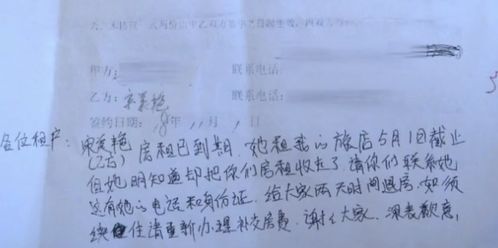 六、本协议一式两份由甲乙双方签字之日起生效，
甲方：
联系电话：
乙方：宋美艳
联系电话：
签约日期：18年11月1日
各位租户：宋美艳房租已到期，她租我的旅店5月1日截止
(乙方)
但她明知道却把你们房租收走了，请你们联系她
这有她的电话和身份证，给大家两天时间退房，如须
续住请重新办理补交房费，谢谢大家，深表歉意，